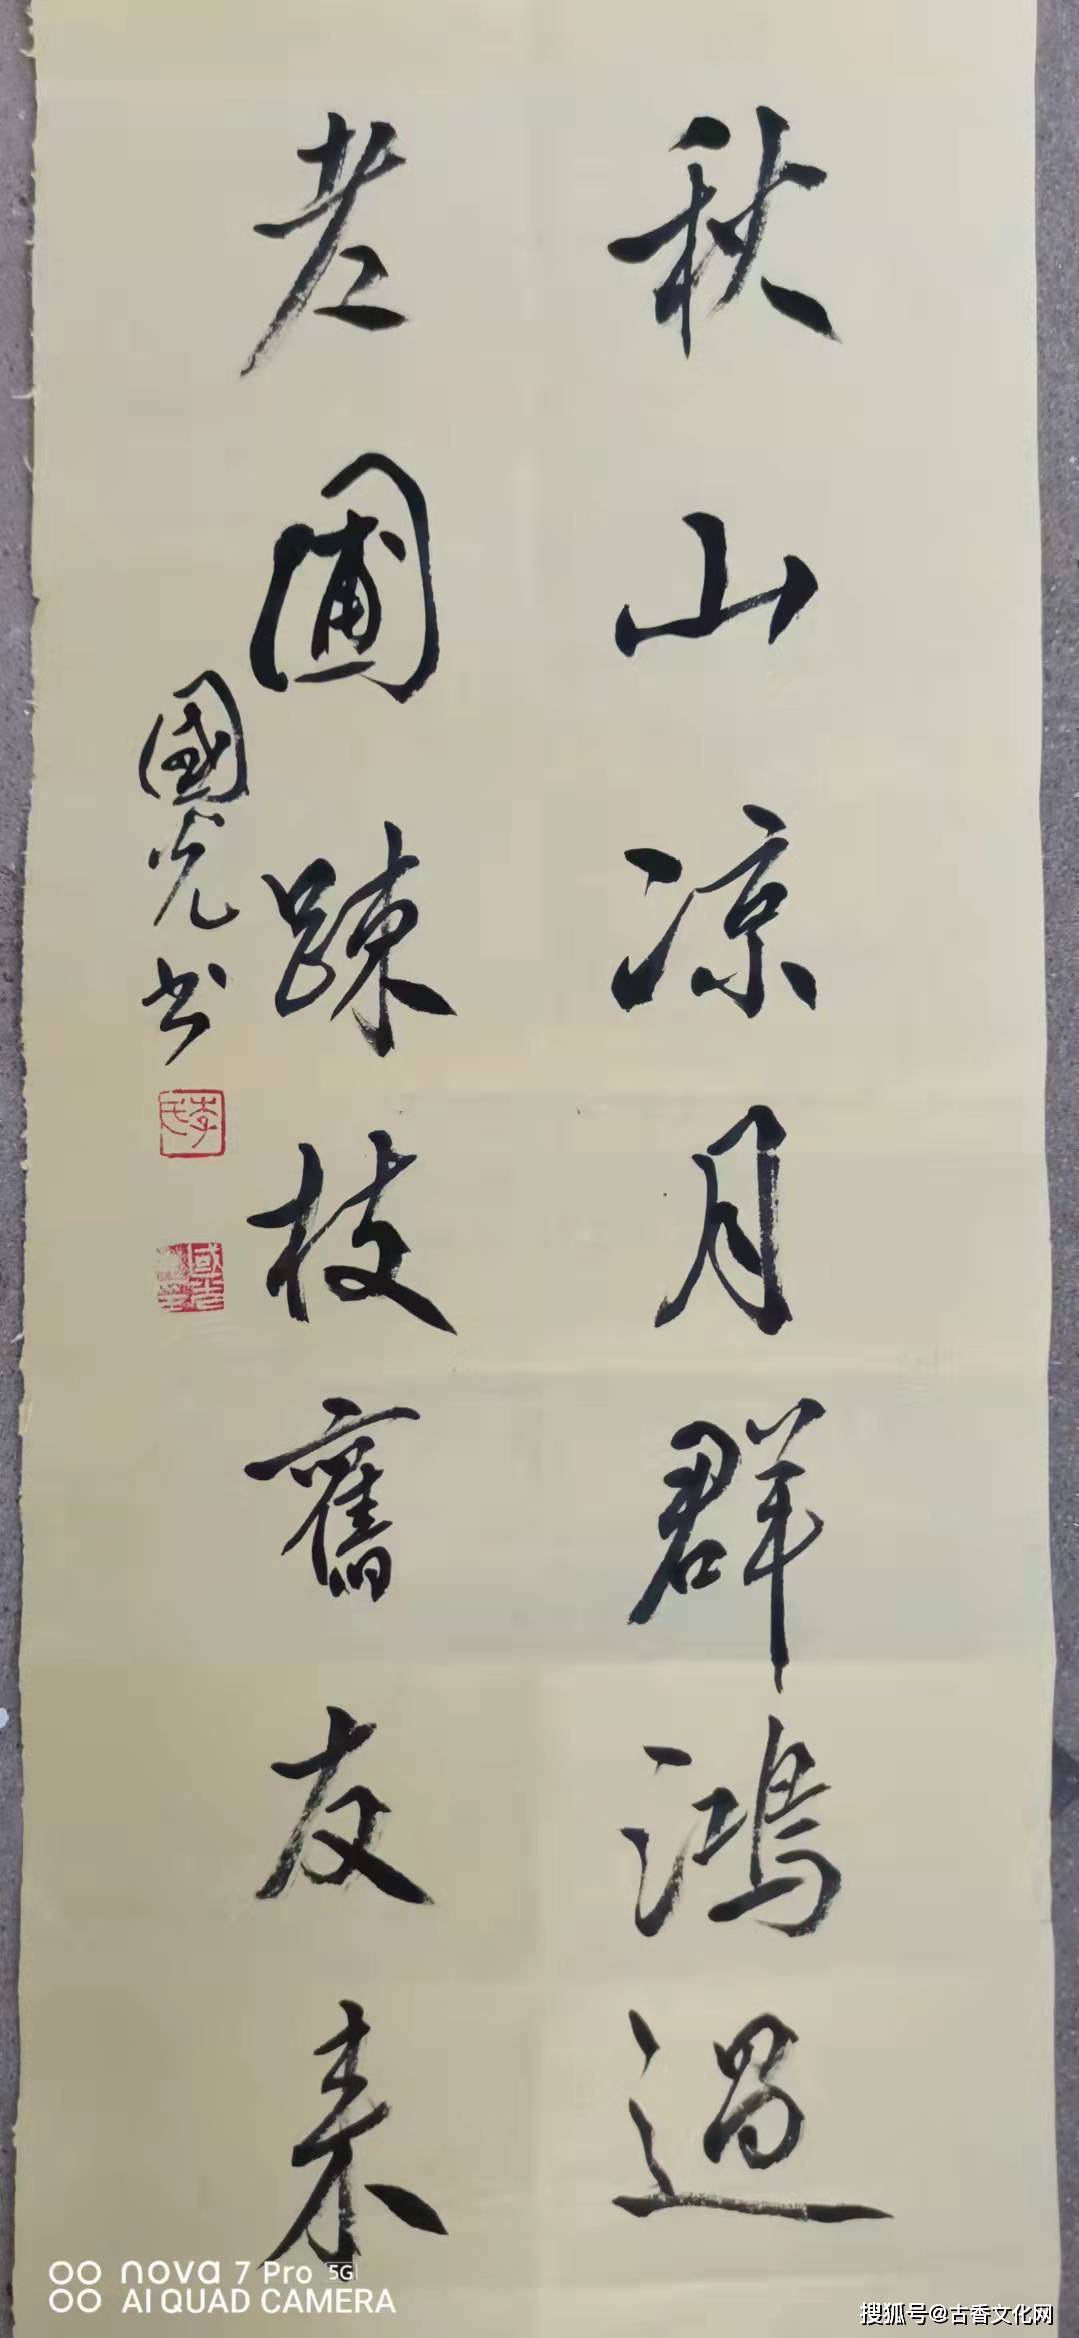 秋山凉月群鴻過
老圃踈枝舊友来
國光书
李氏
國光
nova 7 Pro 5G
AI QUAD CAMERA
搜狐号@古香文化网